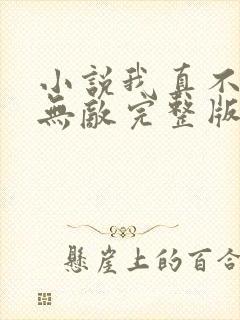 小說我真不
無敵完整版
懸崖上的百合